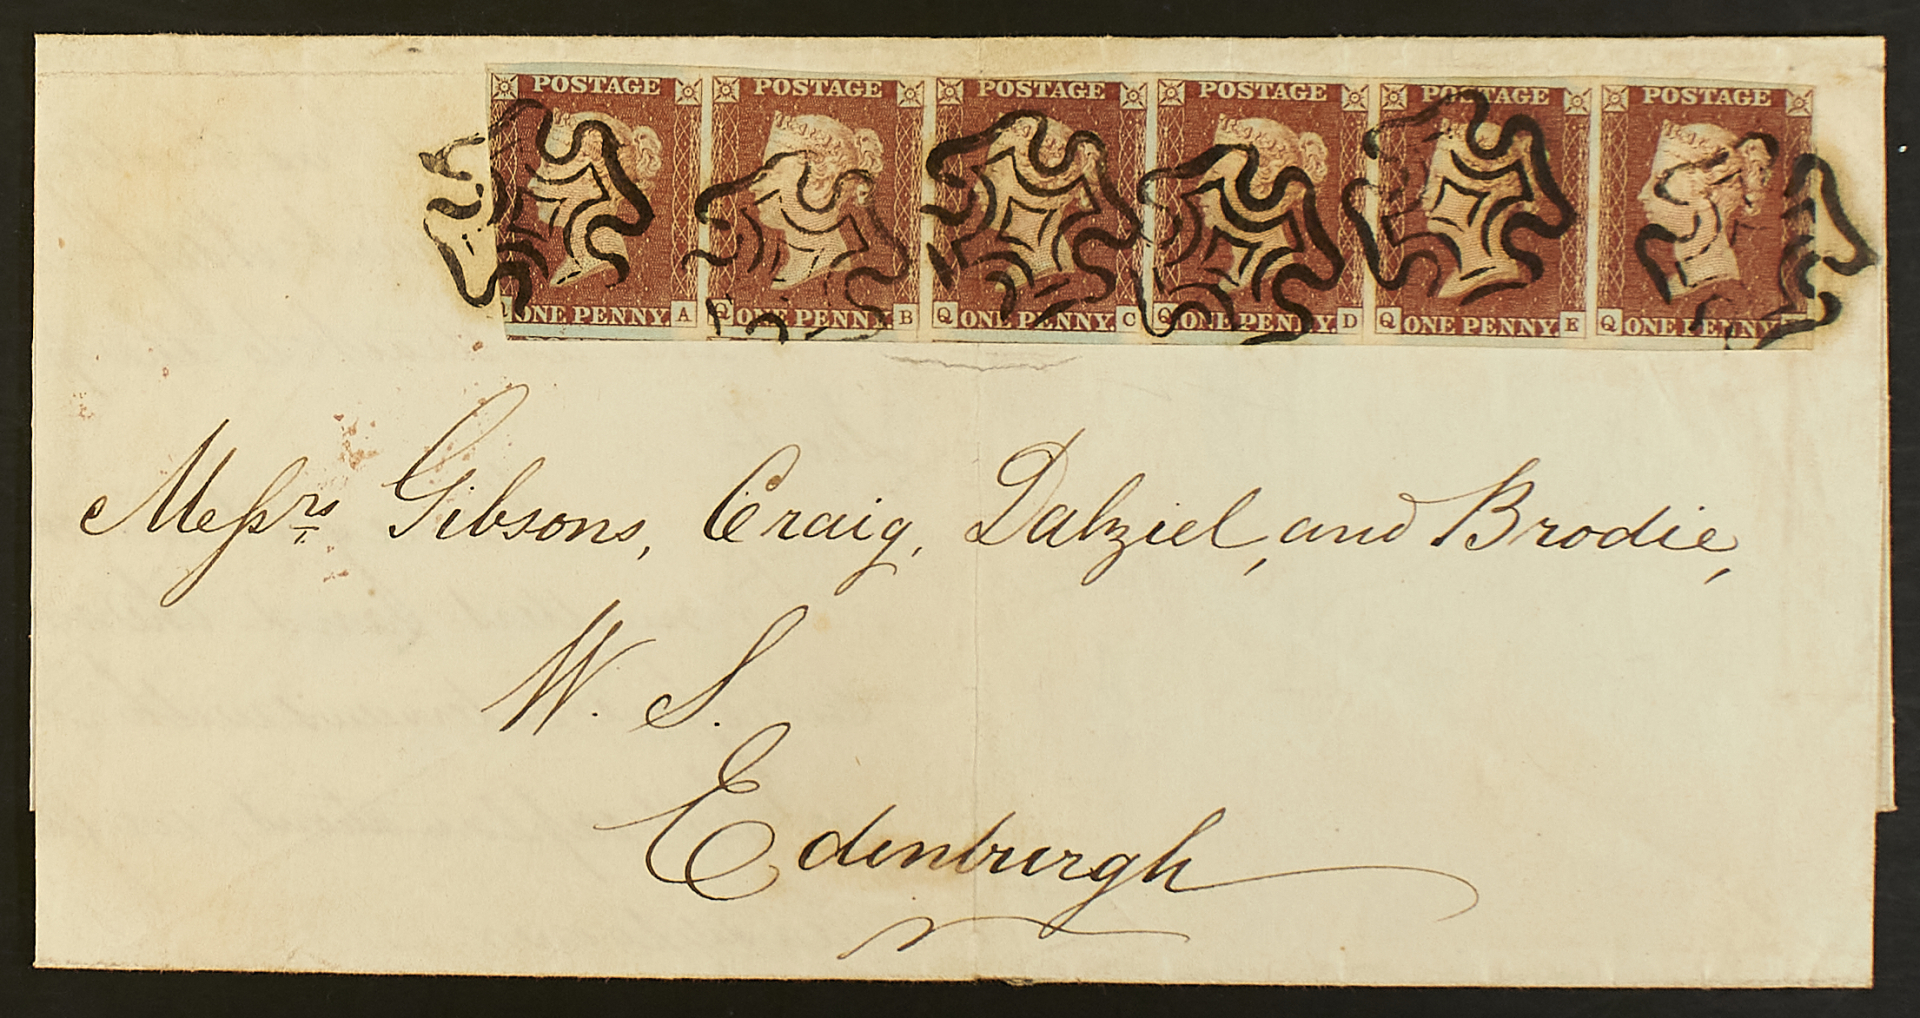 POSTAGE POSTAGE POSTAGE POSTAGE POSTAGE POSTAGE
ONE PENNY A Q ONE PENNY B Q ONE PENNY C Q ONE PENNY D Q ONE PENNY E Q ONE PENNY
Messrs Gibsons, Craig, Dalziel, and Brodie,
W. S.
Edenburgh